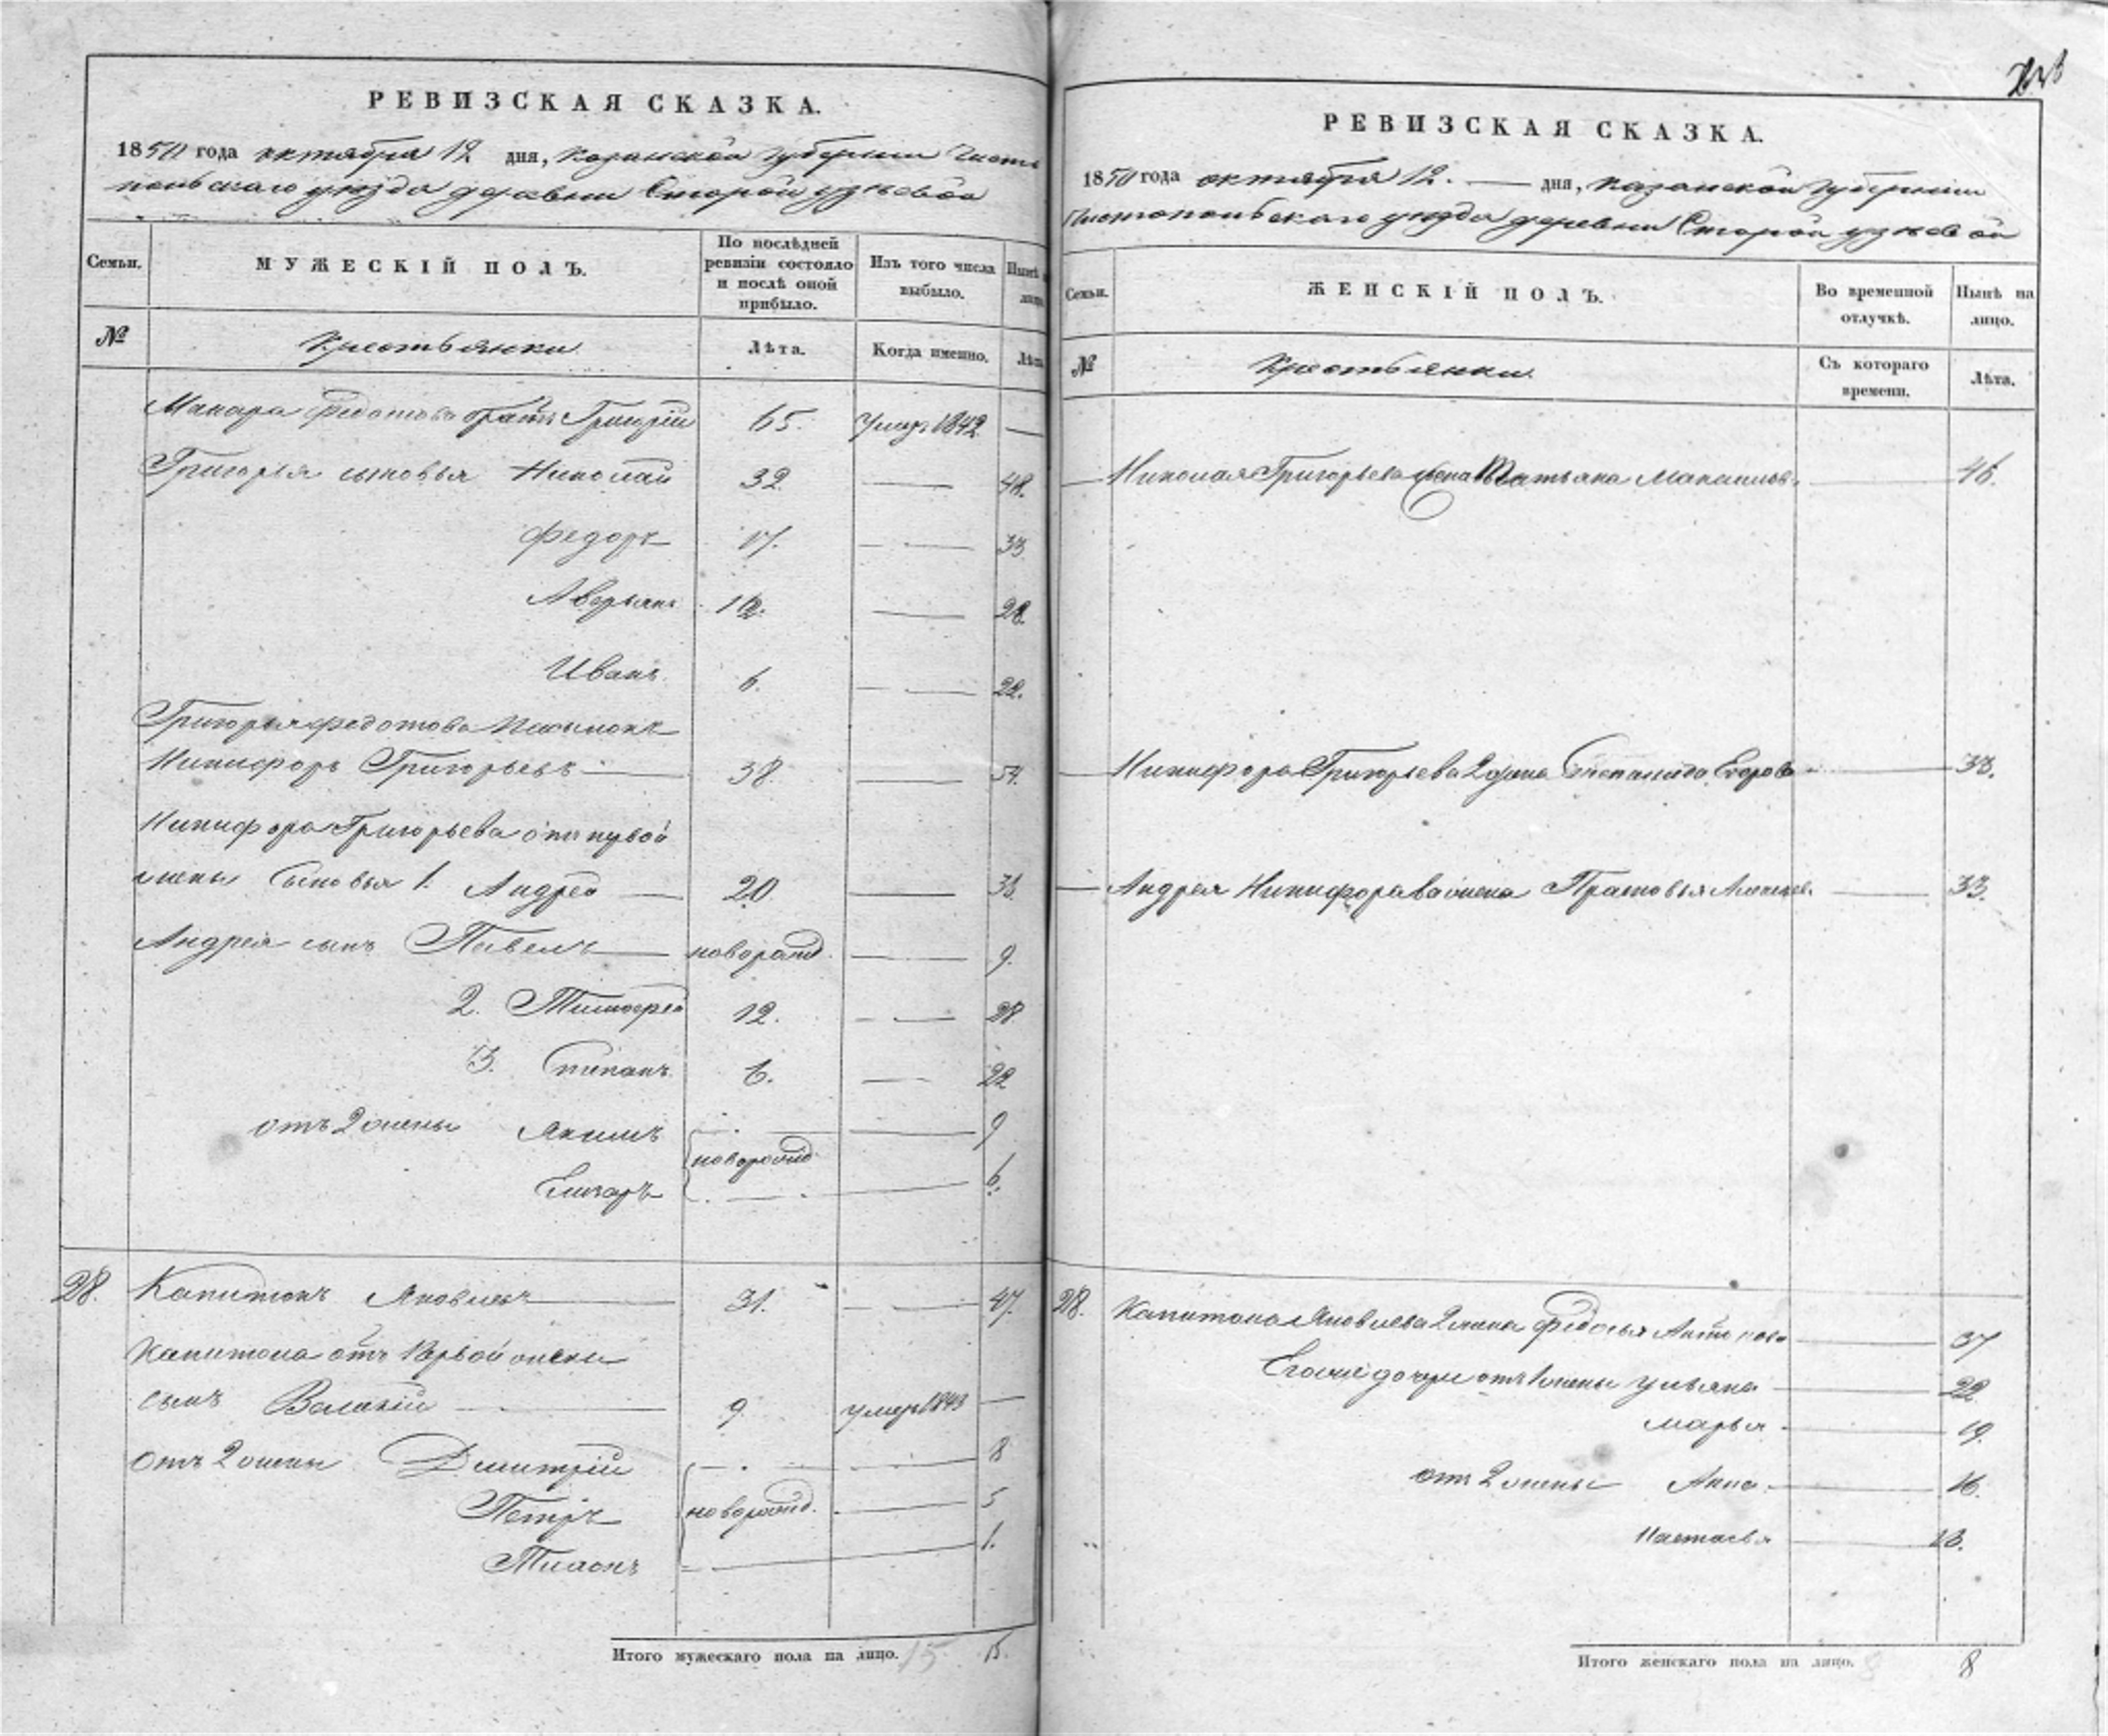 РЕВИЗСКАЯ СКАЗКА.
1850 года октября 12 дня, Казанской губернии Чисто
польскаго уезда деревни Старой узеевой
Семьи.
МУЖЕСКІЙ ПОЛЪ.
По послѣдней ревизіи состояло и послѣ оной прибыло.
Изъ того числа выбыло.
Нынѣ
лицо.
№
Крестьянки
Лѣта.
Когда именно.
Лѣта
Макара Федотова братъ Григорій 65. умеръ 1842 —
Григорья сыновья Николай 32 — 48.
Федоръ 17. — 33
Аверьянъ 12. — 28.
Иванъ 6. — 22.
Григорья Федотова пасынокъ
Никифоръ Григорьевъ — 38. — 54.
Никифора Григорьева отъ первой
жены сыновья 1. Андрей — 20. — 36.
Андрея сынъ Павелъ — новорожд. — 9.
2. Тимофей 12. — 28
3. Степанъ 6. — 22
отъ 2 жены Якимъ — 9
новорожд.
Елизаръ — 6.
28. Капитонъ Яковлевъ — 31. — 47.
Капитона отъ 1 первой жены
сынъ Василій — 9. умеръ 1843 —
отъ 2 жены Дмитрій — 8
Петръ новорожд. — 5
Тихонъ — 1.
Итого мужескаго пола на лицо. 15 15.
РЕВИЗСКАЯ СКАЗКА.
1850 года октября 12. — дня, Казанской губерніи
Чистопольскаго уезда деревни Старой узеевой
Семьи.
ЖЕНСКІЙ ПОЛЪ.
Во временной отлучкѣ.
Нынѣ на лицо.
№
Крестьянки.
Съ котораго времени.
Лѣта.
Николая Григорьева жена Татьяна Максимов. — 46.
Никифора Григорьева 2 жена Степанида Егорова — 38.
Андрея Никифорова жена Прасковья — 33.
28. Капитона Яковлева 2 жена Федосья Антонова — 37
Его же дочери отъ 1 жены Ульяна — 22
Марья — 19.
отъ 2 жены Анна — 16.
Настасья — 13.
Итого женскаго пола на лицо. 8 8